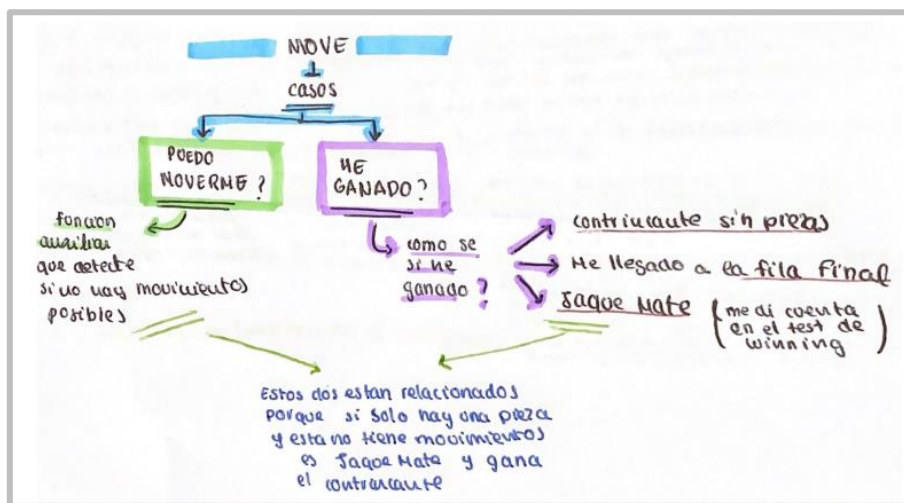 MOVE
casos
PUEDO
MOVERME?
HE
GANADO?
funcion
auxiliar
que detecte
si no hay movimientos
posibles
como se
si he
ganado?
contrincante sin piezas
He llegado a la fila final
Jaque Mate
(me di cuenta
en el test de
winning)
Estos dos estan relacionados
porque si solo hay una pieza
y esta no tiene movimientos
es Jaque Mate y gana
el contrincante